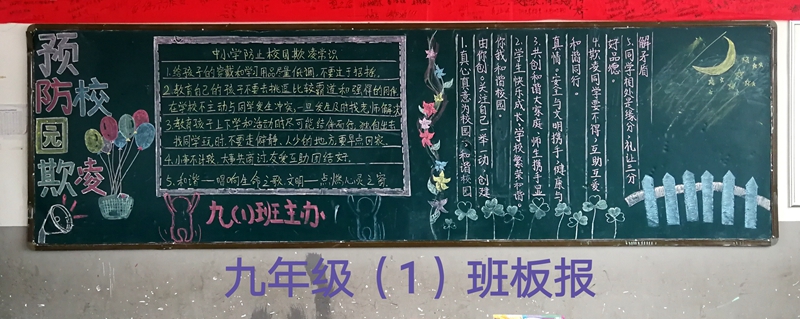 预防校园欺凌
中小学防止校园欺凌常识
1.给孩子的穿戴和学习用品尽量低调,不要过于招摇。
2.教育自己的孩子不要去挑逗比较霸道和强悍的同伴
在学校不主动与同学发生冲突,一旦发生及时找老师解决
3.教育孩子上下学和活动时尽可能结伴而行,独自出去
找同学玩时,不要走僻静、人少的地方要早点回家。
4.小事不计较,大事共商讨,友爱互助团结好。
5.和谐——唱响生命之歌文明——点燃心灵之窗
九(1)班主办
1.真心真意为校园,和谐校园
由你创。关注自己一举一动,创建
你我和谐校园。
2.学生快乐成长,学校繁荣和谐
3.共创和谐大家庭,师生携手显
真情。安全与文明携手,健康与
和谐同行。
4.欺凌同学要不得,互助互爱
好品德。
5.同学相处是缘分,礼让三分
解矛盾
九年级（1）班板报